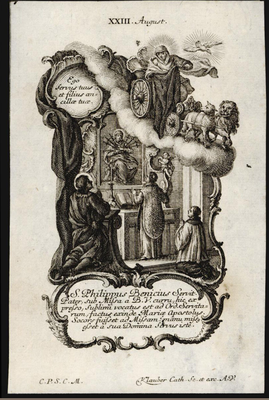 XXIII. August.
Ego
servus tuus
et filius an-
cillæ tuæ.
S. Philippus Benicius Servit.
Pater, sub Missa a B.V. curru, hic ex-
presso, sublimi vocatus est ad Ord. Servita-
rum, factus exinde Mariæ Apostolus.
esset a sua Domina servus iste.
C.P.S.C.M.
Klauber Cath. Sc. et exc. A.V.